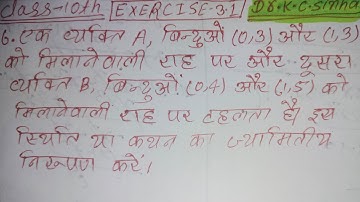 class-10th EXERCISE-3.1 Dr.K.C.Sinha
6. एक व्यक्ति A, बिन्दुओं (0,3) और (1,3)
को मिलानेवाली राह पर और दूसरा
व्यक्ति B, बिन्दुओं (0,4) और (1,5) को
मिलानेवाली राह पर टहलता है। इस
स्थिति या कथन का ज्यामितीय
निरूपण करें।